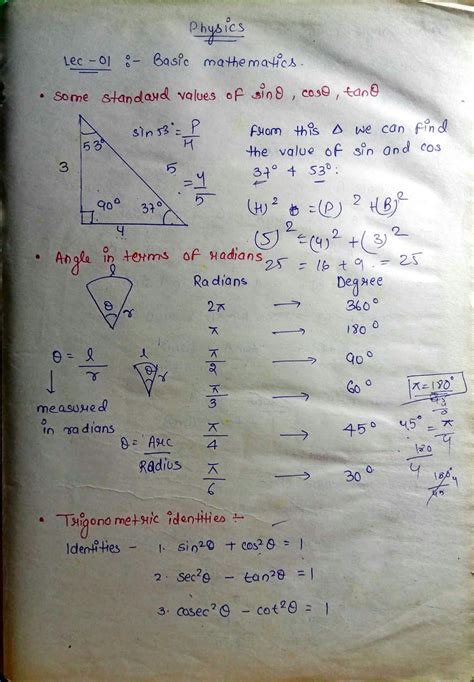 Physics
Lec - 01 :- Basic mathematics.
• Some standard values of sinθ, cosθ, tanθ
53°
3
90° 37°
4
5
sin 53° = P/H
= 4/5
From this Δ we can find
the value of sin and cos
37° & 53°.
(H)² = (P)² + (B)²
(5)² = (4)² + (3)²
25 = 16 + 9 = 25
• Angle in terms of radians
l
θ r
Radians Degree
2π → 360°
π → 180°
π/2 → 90°
π/3 → 60°
π/4 → 45°
π/6 → 30°
θ = l/r
l
θ r
measured
in radians
θ = Arc/Radius
π = 180°
45° = π/4
180/4
• Trigonometric identities :-
Identities - 1. sin²θ + cos²θ = 1
2. sec²θ - tan²θ = 1
3. cosec²θ - cot²θ = 1